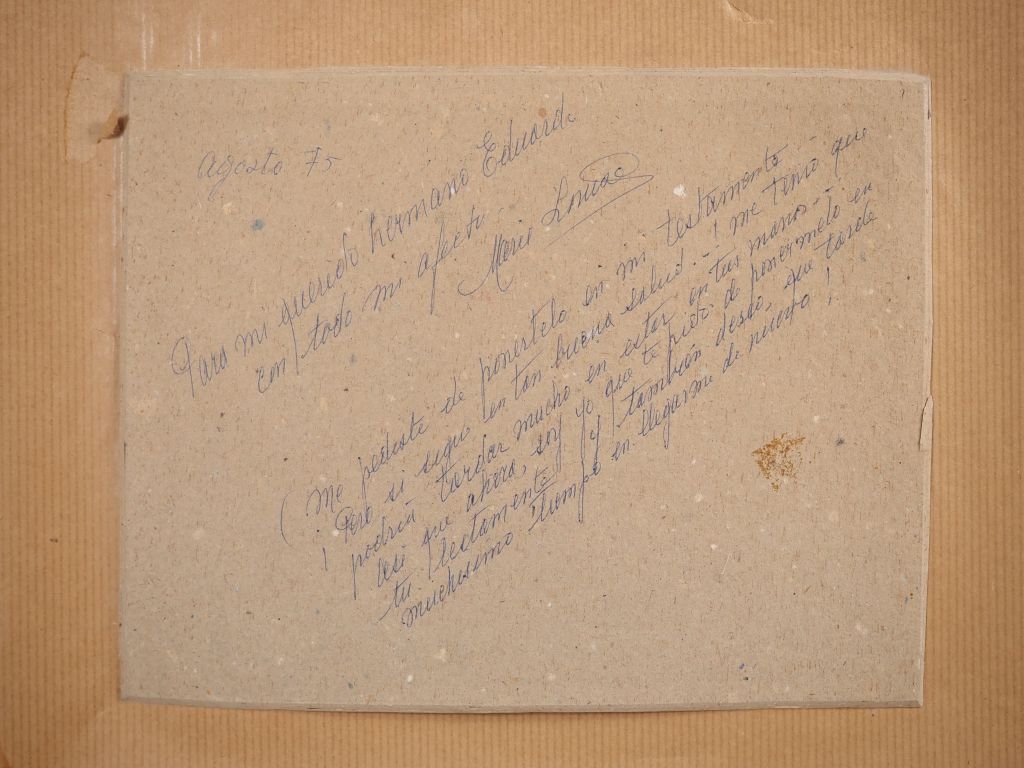 Agosto 75
Para mi querido hermano Eduardo
con todo mi afecto.
Mari
(Me pediste de ponertelo en mi testamento.-
¡Pero si sigo en tan buena salud.- ¡me temo que
podria tardar mucho en estar en tus manos.-
asi que ahora, soy yo que te pido de ponermelo en
tu testamento y también deseo, que tarde
muchisimo tiempo en llegarme de nuevo!